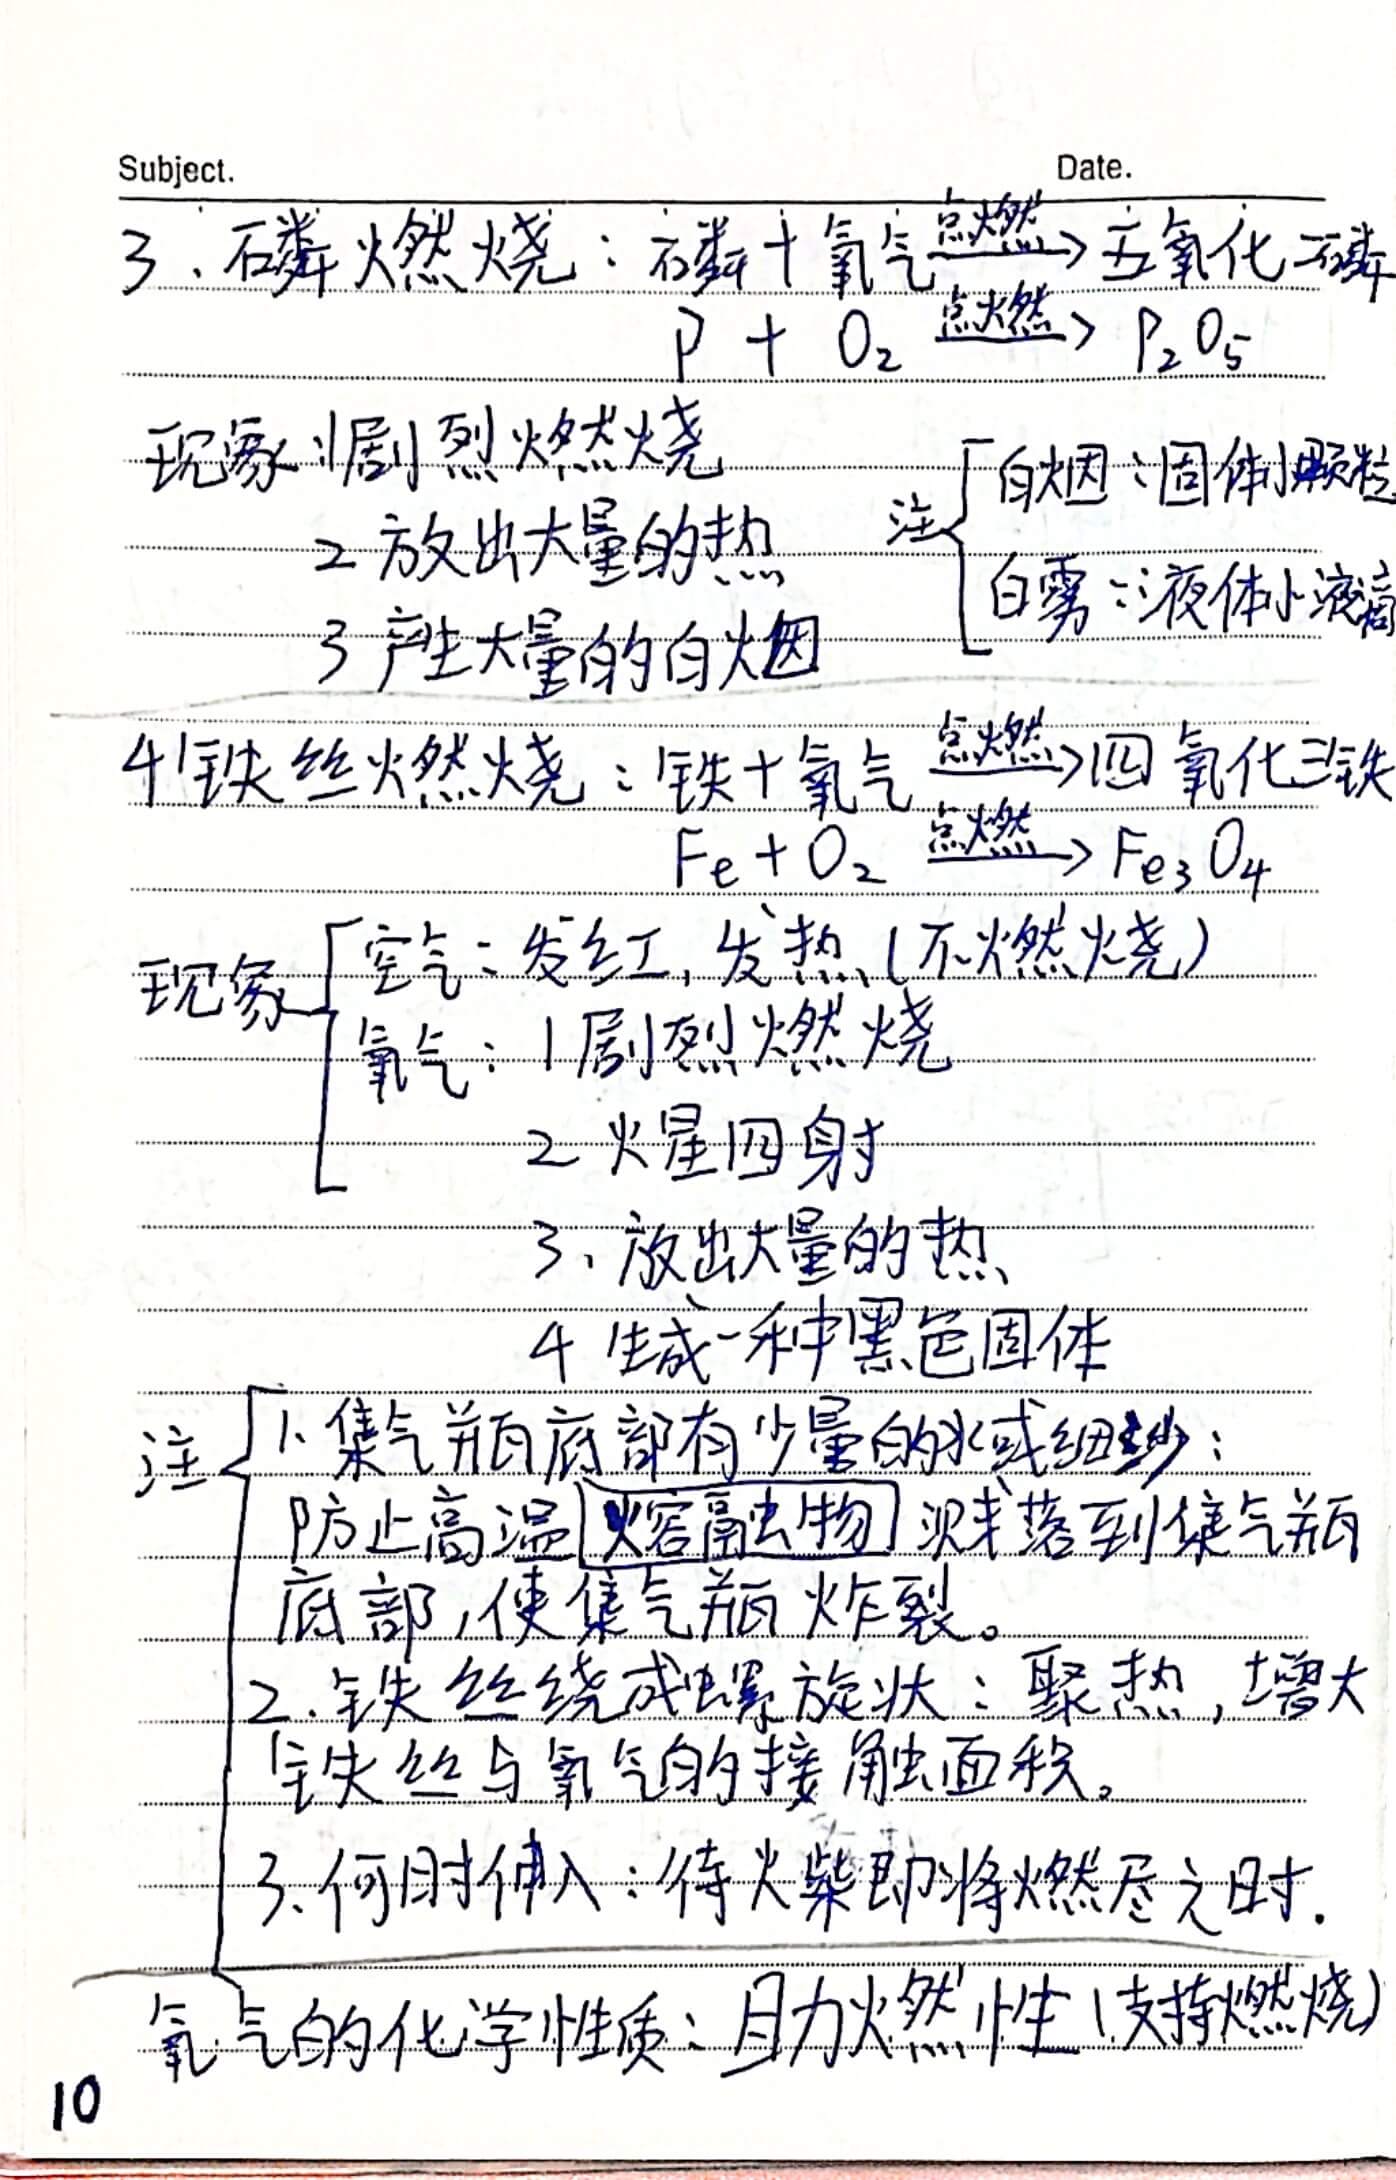 Subject. Date.
3、磷燃烧：磷＋氧气 点燃→ 五氧化二磷
P + O₂ 点燃→ P₂O₅
现象：1剧烈燃烧
2 放出大量的热
3 产生大量的白烟
注 白烟：固体小颗粒
白雾：液体小液滴
4 铁丝燃烧：铁＋氧气 点燃→ 四氧化三铁
Fe + O₂ 点燃→ Fe₃O₄
现象 空气：发红，发热（不燃烧）
氧气：1 剧烈燃烧
2 火星四射
3、放出大量的热
4 生成一种黑色固体
注 1、集气瓶底部有少量的水或细沙：
防止高温熔融物溅落到集气瓶
底部，使集气瓶炸裂。
2、铁丝绕成螺旋状：聚热，增大
铁丝与氧气的接触面积。
3、何时伸入：待火柴即将燃尽之时.
氧气的化学性质：助燃性（支持燃烧）
10